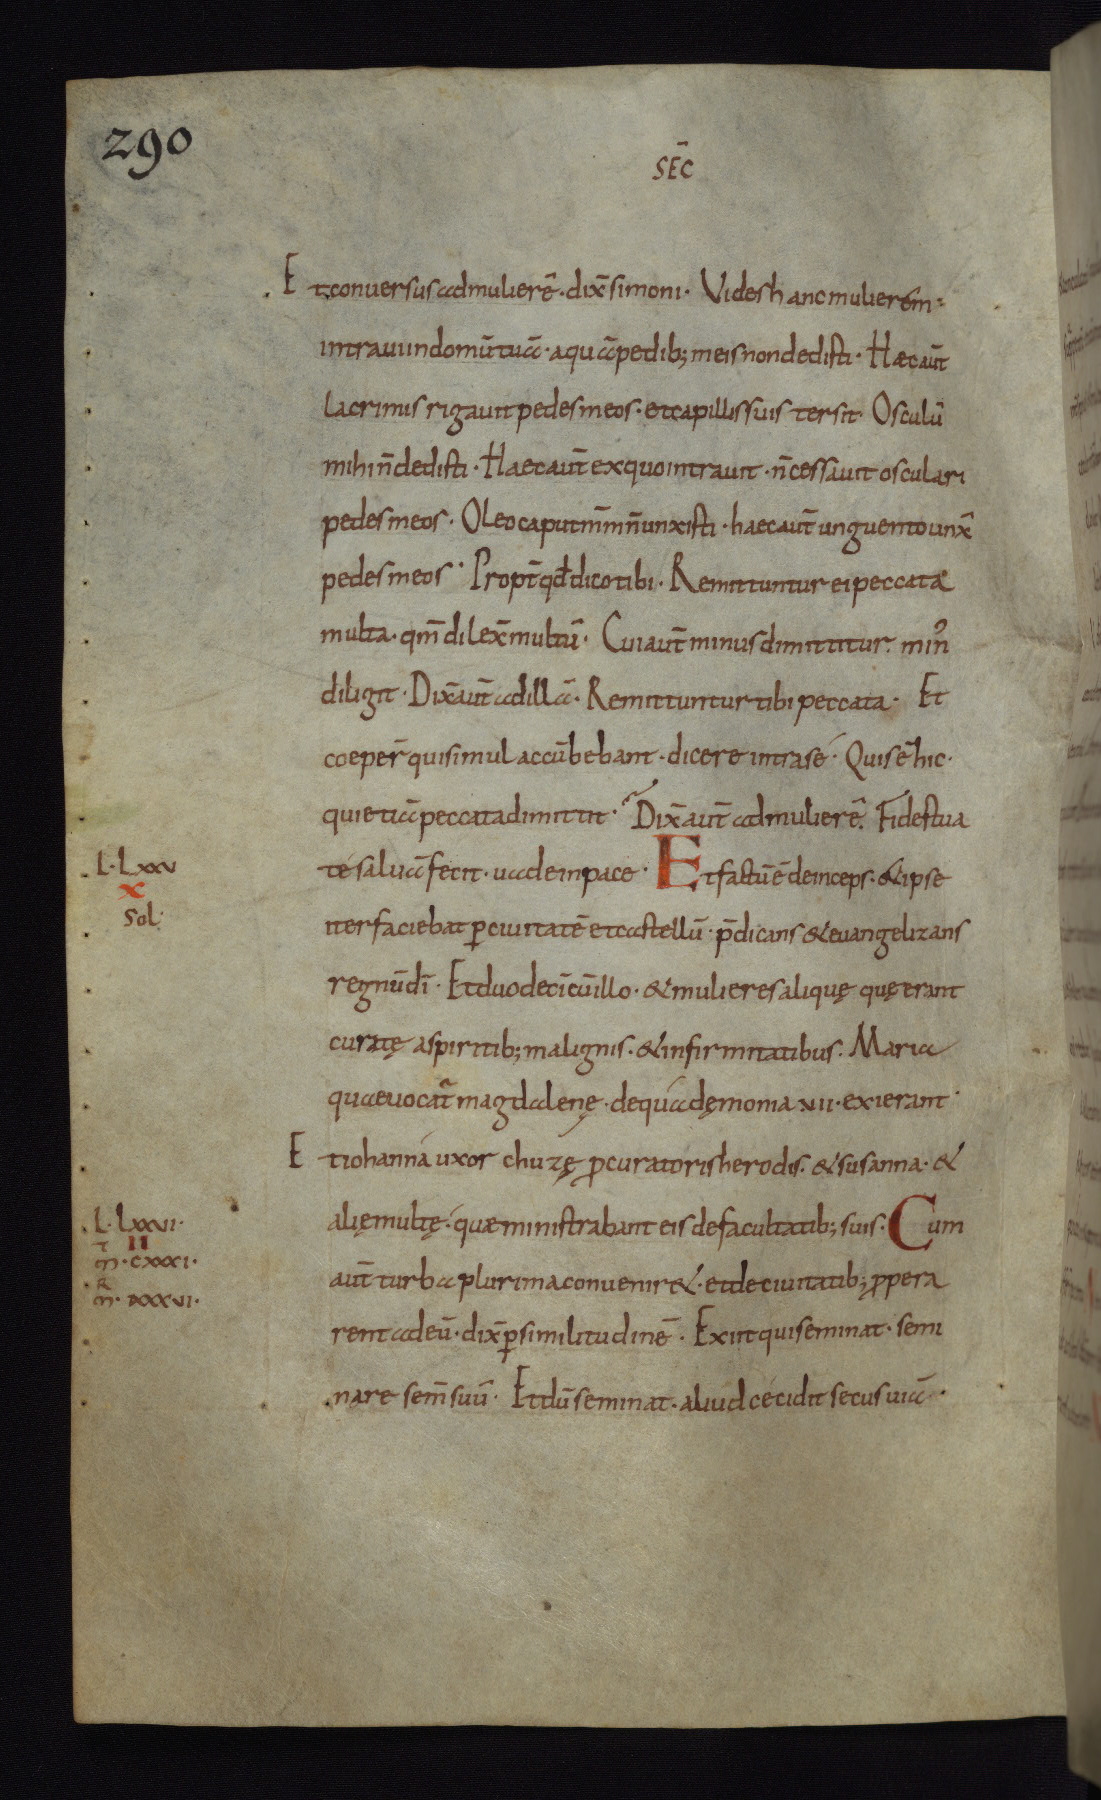 290
SEC̄
Et conuersus ad mulierē · dix̄ simoni · Vides hanc mulierem ·
intraui in domū tuā · aquā pedib; meis non dedisti · Haec aut̄
lacrimis rigauit pedes meos · et capillis suis tersit Osculū
mihi n̄ dedisti · Haec aut̄ ex quo intrauit · n̄ cessauit osculari
pedes meos · Oleo caput m̄m n̄ unxisti · haec aut̄ unguento unx̄
pedes meos · Propt̄ qd̄ dico tibi · Remittuntur ei peccata
multa · qm̄ dilex̄ multū · Cui aut̄ minus dimittitur · min᾽
diligit · Dix̄ aut̄ ad illā · Remittuntur tibi peccata · Et
coeper̄ qui simul accūbebant · dicere intra se · Quis ē hic ·
qui etiā peccata dimittit · Dix̄ aut̄ ad mulierē · Fides tua
te saluā fecit · uade in pace · Et factū ē deinceps · & ipse
L · Lxxv
x
Sol ·
iter faciebat p̄ ciuitatē et castellū · p̄dicans & euangelizans
regnū dī · Et duodecī cū illo · & mulieres aliquę quę erant
curatę a spiritib; malignis · & infirmitatibus · Maria
quae uocat̄ magdalenę · de qua dęmonia uii · exierant ·
Et iohanna uxor chuzę p̄curatoris herodis · & susanna · &
alię multę · quae ministrabant eis de facultatib; suis · Cum
L · Lxxvi ·
II
m̄ · cxxxi ·
m̄ · xxxvi ·
aut̄ turba plurima conuenir& · et de ciuitatib; p̄pera
rent ad eū · dix̄ p̄ similitudinē · Exiit qui seminat · semi
nare sem̄ suū · Et dū seminat · aliud cecidit secus uiā ·